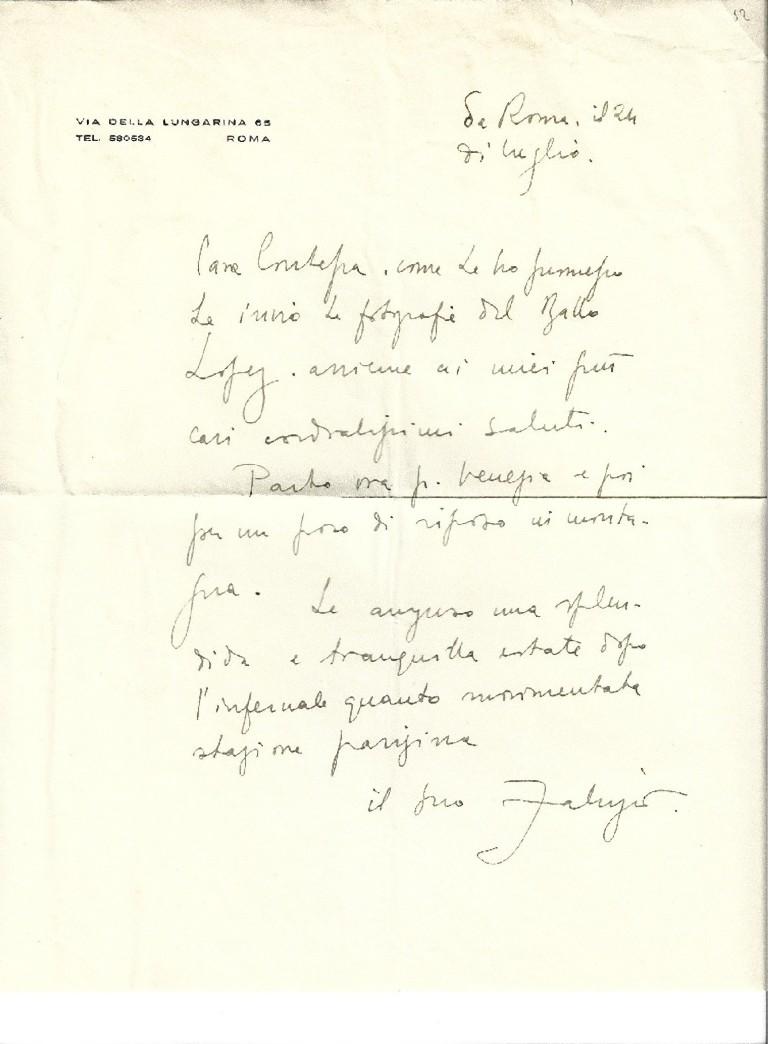 52
VIA DELLA LUNGARINA 65
TEL. 580534 ROMA
da Roma. il 24
di luglio.
Cara Contessa. come Le ho promesso
Le invio le fotografie del Ballo
Lopez. assieme ai miei più
cari cordialissimi saluti.
Parto ora p. Venezia e poi
per un poco di riposo in monta-
gna. Le auguro una splen-
dida e tranquilla estate dopo
l'infernale quanto movimentata
stagione parigina
il suo